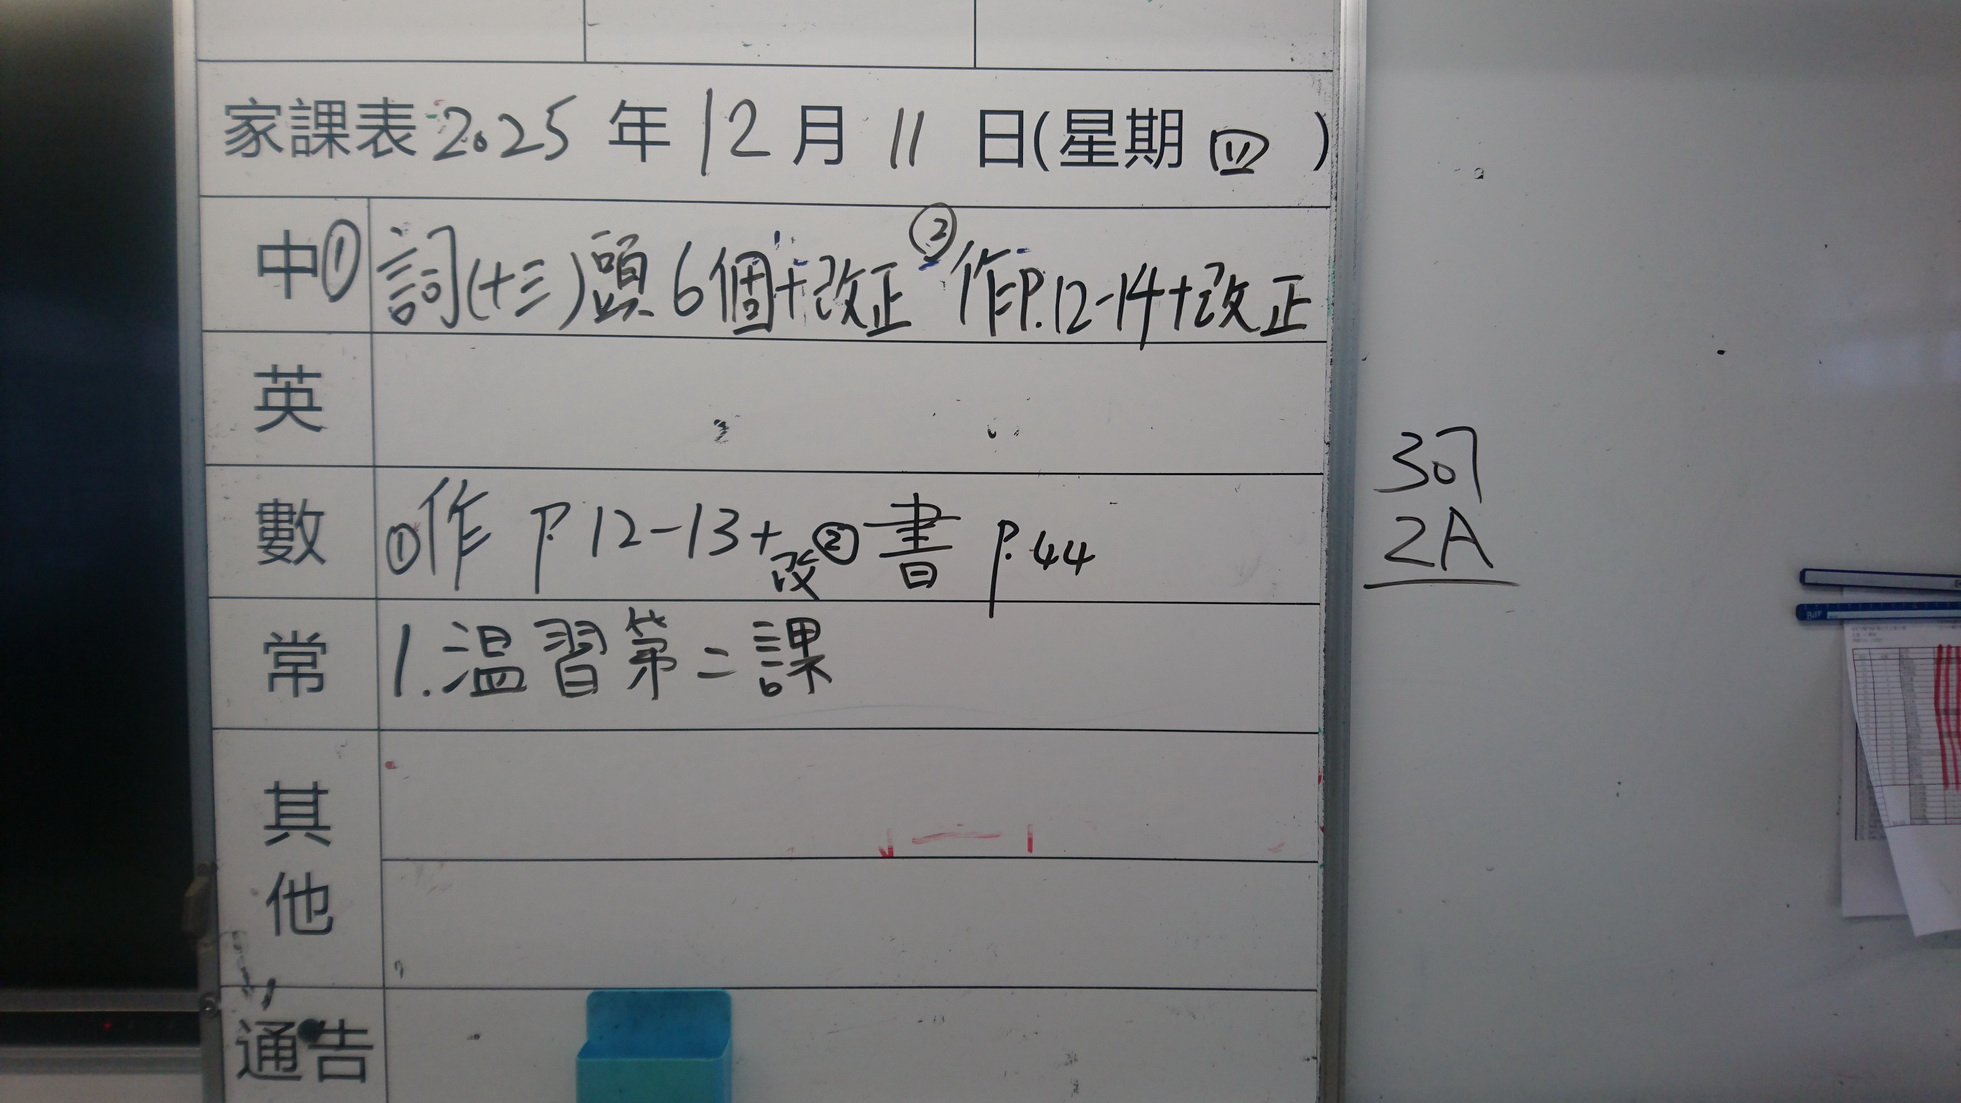 家課表 2025 年 12 月 11 日(星期 四 )
中 ① 詞(十三)頭 6個+改正 ② 作P.12-14+改正
英
數 ①作 P.12-13+改 ②書 P.44
常 1.温習第二課
其他
通告
307
2A